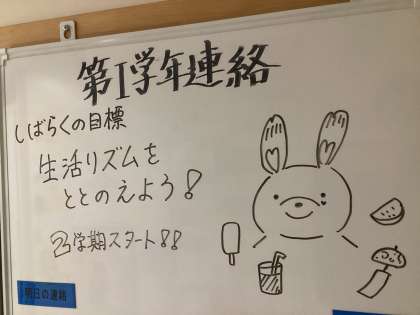 第I学年連絡
しばらくの目標
生活リズムを
ととのえよう!
2学期スタート!!
明日の連絡